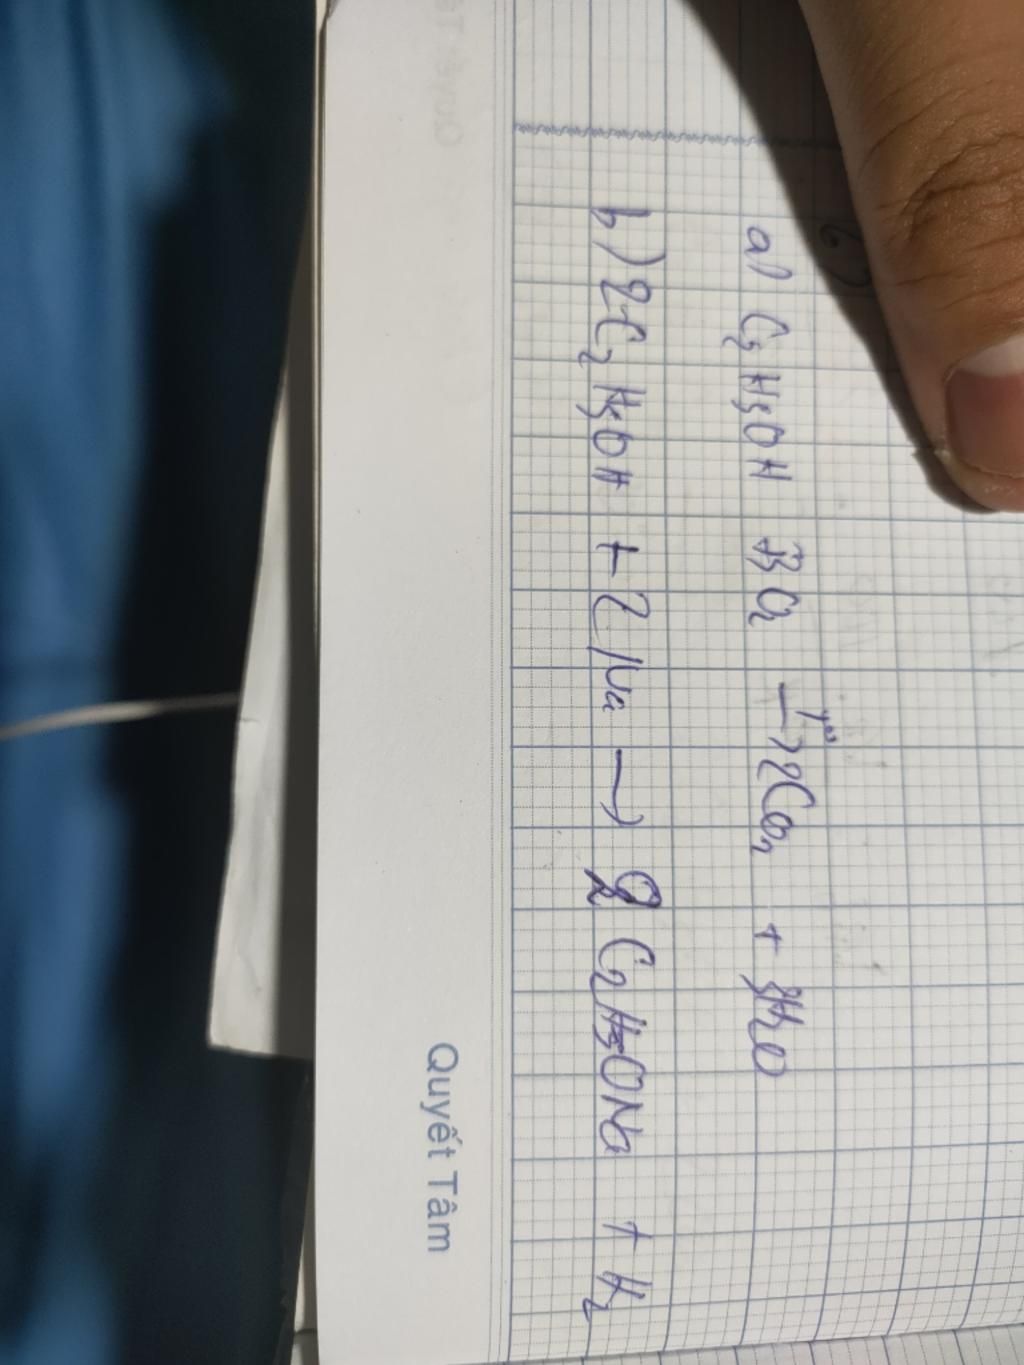 a) C₂H₅OH + 3O₂ —t°→ 2CO₂ + 3H₂O
b) 2C₂H₅OH + 2Na → 2 C₂H₅ONa + H₂
Quyết Tâm